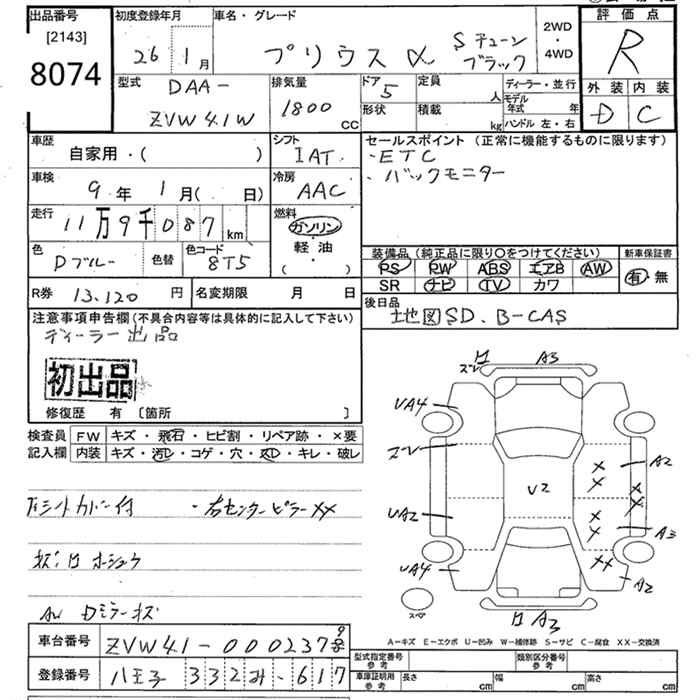 出品番号
[2143]
8074
初度登録年月
26 1月
車名・グレード
プリウスα Sチューンブラック
2WD
・
4WD
評価点
R
外装 内装
D C
型式
DAA-
ZVW41W
排気量
1800
cc
ドア
5
定員
人
形状
積載
kg
ディーラー・並行
モデル年式 年
ハンドル 左・右
車歴
自家用・( )
シフト
IAT
車検
9年 1月( 日)
冷房
AAC
走行
11万9千087km
燃料
ガソリン
・
軽油
( )
色
Dブルー
色替
色コード
8T5
R券 13,120円
名変期限 月 日
セールスポイント(正常に機能するものに限ります)
・ETC
・バックモニター
装備品(純正品に限り○をつけてください)
PS PW ABS エアB AW
SR ナビ TV カワ
新車保証書
有・無
後日品
地図SD、B-CAS
注意事項申告欄(不具合内容等は具体的に記入して下さい)
ディーラー出品
初出品
修復歴 有 〔箇所 〕
検査員記入欄
FW キズ・飛石・ヒビ割・リペア跡・×要
内装 キズ・汚レ・コゲ・穴・スレ・キレ・破レ
・右センターピラーXX
AW Dミラーキズ
A3
ズレ
UA4
ズレ
UA2
UA4
U2
A2
A3
A2
A3
スペア
A-キズ E-エクボ U-凹み W-補修跡 S-サビ C-腐食 XX-交換済
車台番号 ZVW41-0002379号
登録番号 八王子 332 み・617
型式指定番号
参考
類別区分番号
参考
車庫証明用
参考
長さ cm
幅 cm
高さ cm